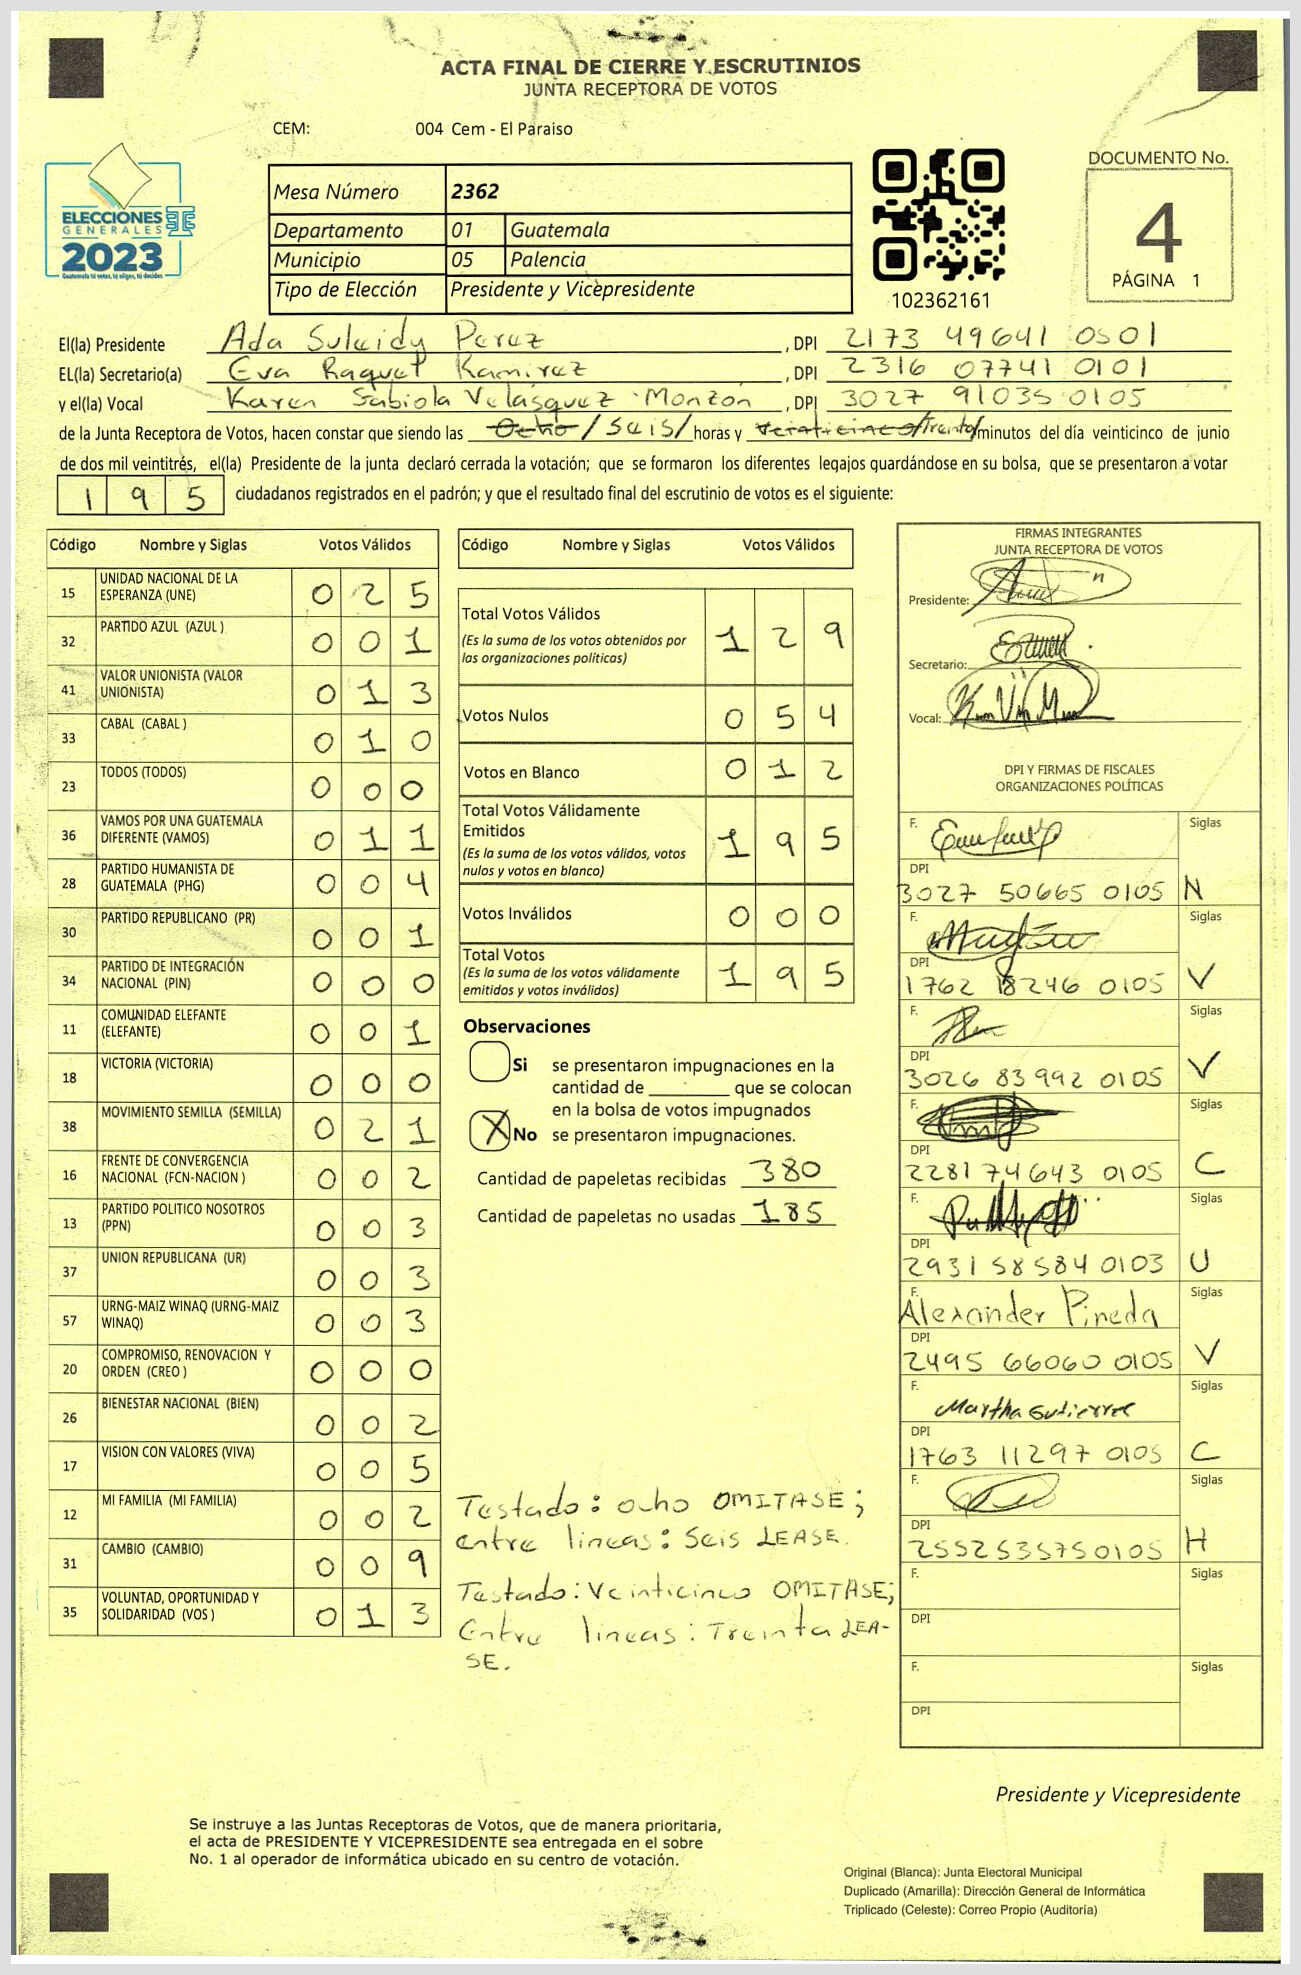 ACTA FINAL DE CIERRE Y ESCRUTINIOS
JUNTA RECEPTORA DE VOTOS
CEM: 004 Cem - El Paraiso
ELECCIONES
GENERALES
2023
Guatemala tú votas, tú eliges, tú decides
Mesa Número 2362
Departamento 01 Guatemala
Municipio 05 Palencia
Tipo de Elección Presidente y Vicepresidente
102362161
DOCUMENTO No.
4
PÁGINA 1
El(la) Presidente Ada Suleidy Perez, DPI 2173 49641 0501
EL(la) Secretario(a) Eva Raquel Ramirez, DPI 2316 07741 0101
y el(la) Vocal Karen Fabiola Velásquez Monzón, DPI 3027 91035 0105
de la Junta Receptora de Votos, hacen constar que siendo las Ocho /Seis/ horas y veinticinco /Treinta/ minutos del día veinticinco de junio
de dos mil veintitrés, el(la) Presidente de la junta declaró cerrada la votación; que se formaron los diferentes legajos guardándose en su bolsa, que se presentaron a votar
195 ciudadanos registrados en el padrón; y que el resultado final del escrutinio de votos es el siguiente:
Código Nombre y Siglas Votos Válidos
15 UNIDAD NACIONAL DE LA ESPERANZA (UNE) 0 2 5
32 PARTIDO AZUL (AZUL ) 0 0 1
41 VALOR UNIONISTA (VALOR UNIONISTA) 0 1 3
33 CABAL (CABAL ) 0 1 0
23 TODOS (TODOS) 0 0 0
36 VAMOS POR UNA GUATEMALA DIFERENTE (VAMOS) 0 1 1
28 PARTIDO HUMANISTA DE GUATEMALA (PHG) 0 0 4
30 PARTIDO REPUBLICANO (PR) 0 0 1
34 PARTIDO DE INTEGRACIÓN NACIONAL (PIN) 0 0 0
11 COMUNIDAD ELEFANTE (ELEFANTE) 0 0 1
18 VICTORIA (VICTORIA) 0 0 0
38 MOVIMIENTO SEMILLA (SEMILLA) 0 2 1
16 FRENTE DE CONVERGENCIA NACIONAL (FCN-NACION ) 0 0 2
13 PARTIDO POLITICO NOSOTROS (PPN) 0 0 3
37 UNION REPUBLICANA (UR) 0 0 3
57 URNG-MAIZ WINAQ (URNG-MAIZ WINAQ) 0 0 3
20 COMPROMISO, RENOVACION Y ORDEN (CREO ) 0 0 0
26 BIENESTAR NACIONAL (BIEN) 0 0 2
17 VISION CON VALORES (VIVA) 0 0 5
12 MI FAMILIA (MI FAMILIA) 0 0 2
31 CAMBIO (CAMBIO) 0 0 9
35 VOLUNTAD, OPORTUNIDAD Y SOLIDARIDAD (VOS ) 0 1 3
Código Nombre y Siglas Votos Válidos
Total Votos Válidos 1 2 9
(Es la suma de los votos obtenidos por
las organizaciones políticas)
Votos Nulos 0 5 4
Votos en Blanco 0 1 2
Total Votos Válidamente
Emitidos 1 9 5
(Es la suma de los votos válidos, votos
nulos y votos en blanco)
Votos Inválidos 0 0 0
Total Votos 1 9 5
(Es la suma de los votos válidamente
emitidos y votos inválidos)
Observaciones
Si se presentaron impugnaciones en la
cantidad de ________ que se colocan
en la bolsa de votos impugnados
X No se presentaron impugnaciones.
Cantidad de papeletas recibidas 380
Cantidad de papeletas no usadas 185
Testado: ocho OMITASE;
entre lineas: Seis LEASE.
Testado: Veinticinco OMITASE;
Entre lineas: Treinta LEA-
SE.
FIRMAS INTEGRANTES
JUNTA RECEPTORA DE VOTOS
Presidente:
Secretario:
Vocal:
DPI Y FIRMAS DE FISCALES
ORGANIZACIONES POLÍTICAS
F. Siglas
DPI
3027 50665 0105 N
F. Siglas
DPI
1762 18246 0105 V
F. Siglas
DPI
3026 83992 0105 V
F. Siglas
DPI
2281 74643 0105 C
F. Siglas
DPI
2931 58584 0103 U
F. Siglas
Alexander Pineda
DPI
2495 66060 0105 V
F. Siglas
Martha Gutierrez
DPI
1763 11297 0105 C
F. Siglas
DPI
2552535750105 H
F. Siglas
DPI
F. Siglas
DPI
Presidente y Vicepresidente
Se instruye a las Juntas Receptoras de Votos, que de manera prioritaria,
el acta de PRESIDENTE Y VICEPRESIDENTE sea entregada en el sobre
No. 1 al operador de informática ubicado en su centro de votación.
Original (Blanca): Junta Electoral Municipal
Duplicado (Amarilla): Dirección General de Informática
Triplicado (Celeste): Correo Propio (Auditoría)